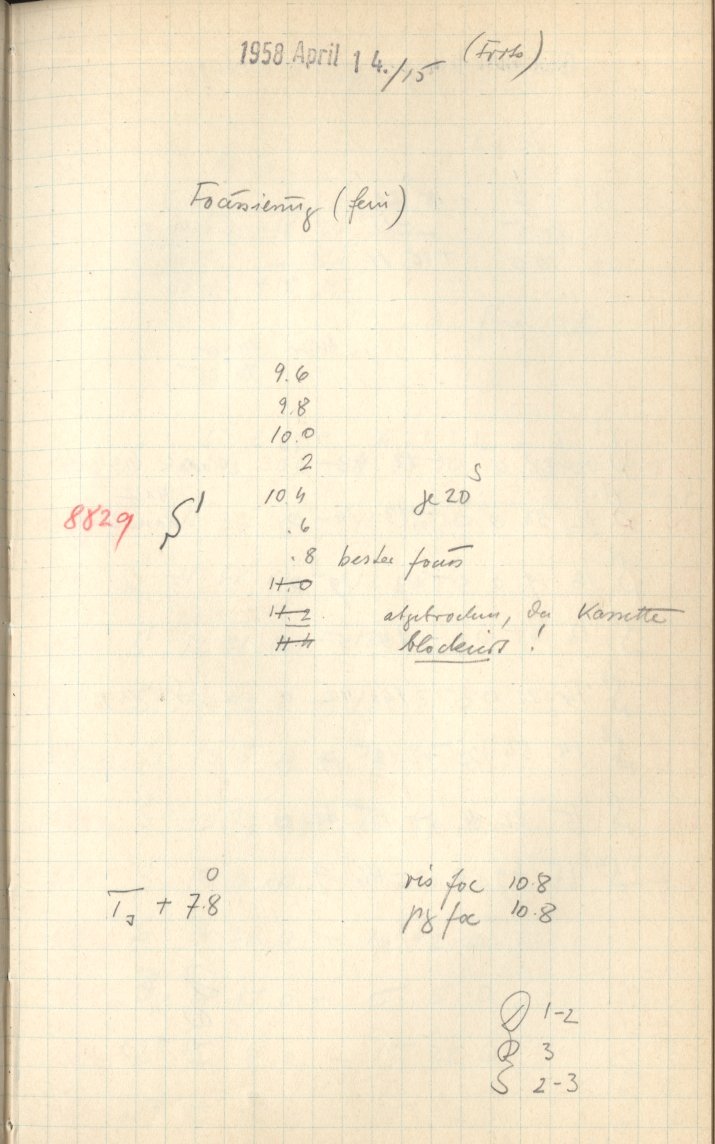 1958 April 14./15 (Forts)
Focussierung (fein)
9.6
9.8
10.0
2
10.4 je 20 s
8829 S'
.6
.8 bester focus
11.0
11.2 abgebrochen, da Kassette
11.4 blockiert!
T + 7.8° vis foc 10.8
pg foc 10.8
1-2
3
S 2-3